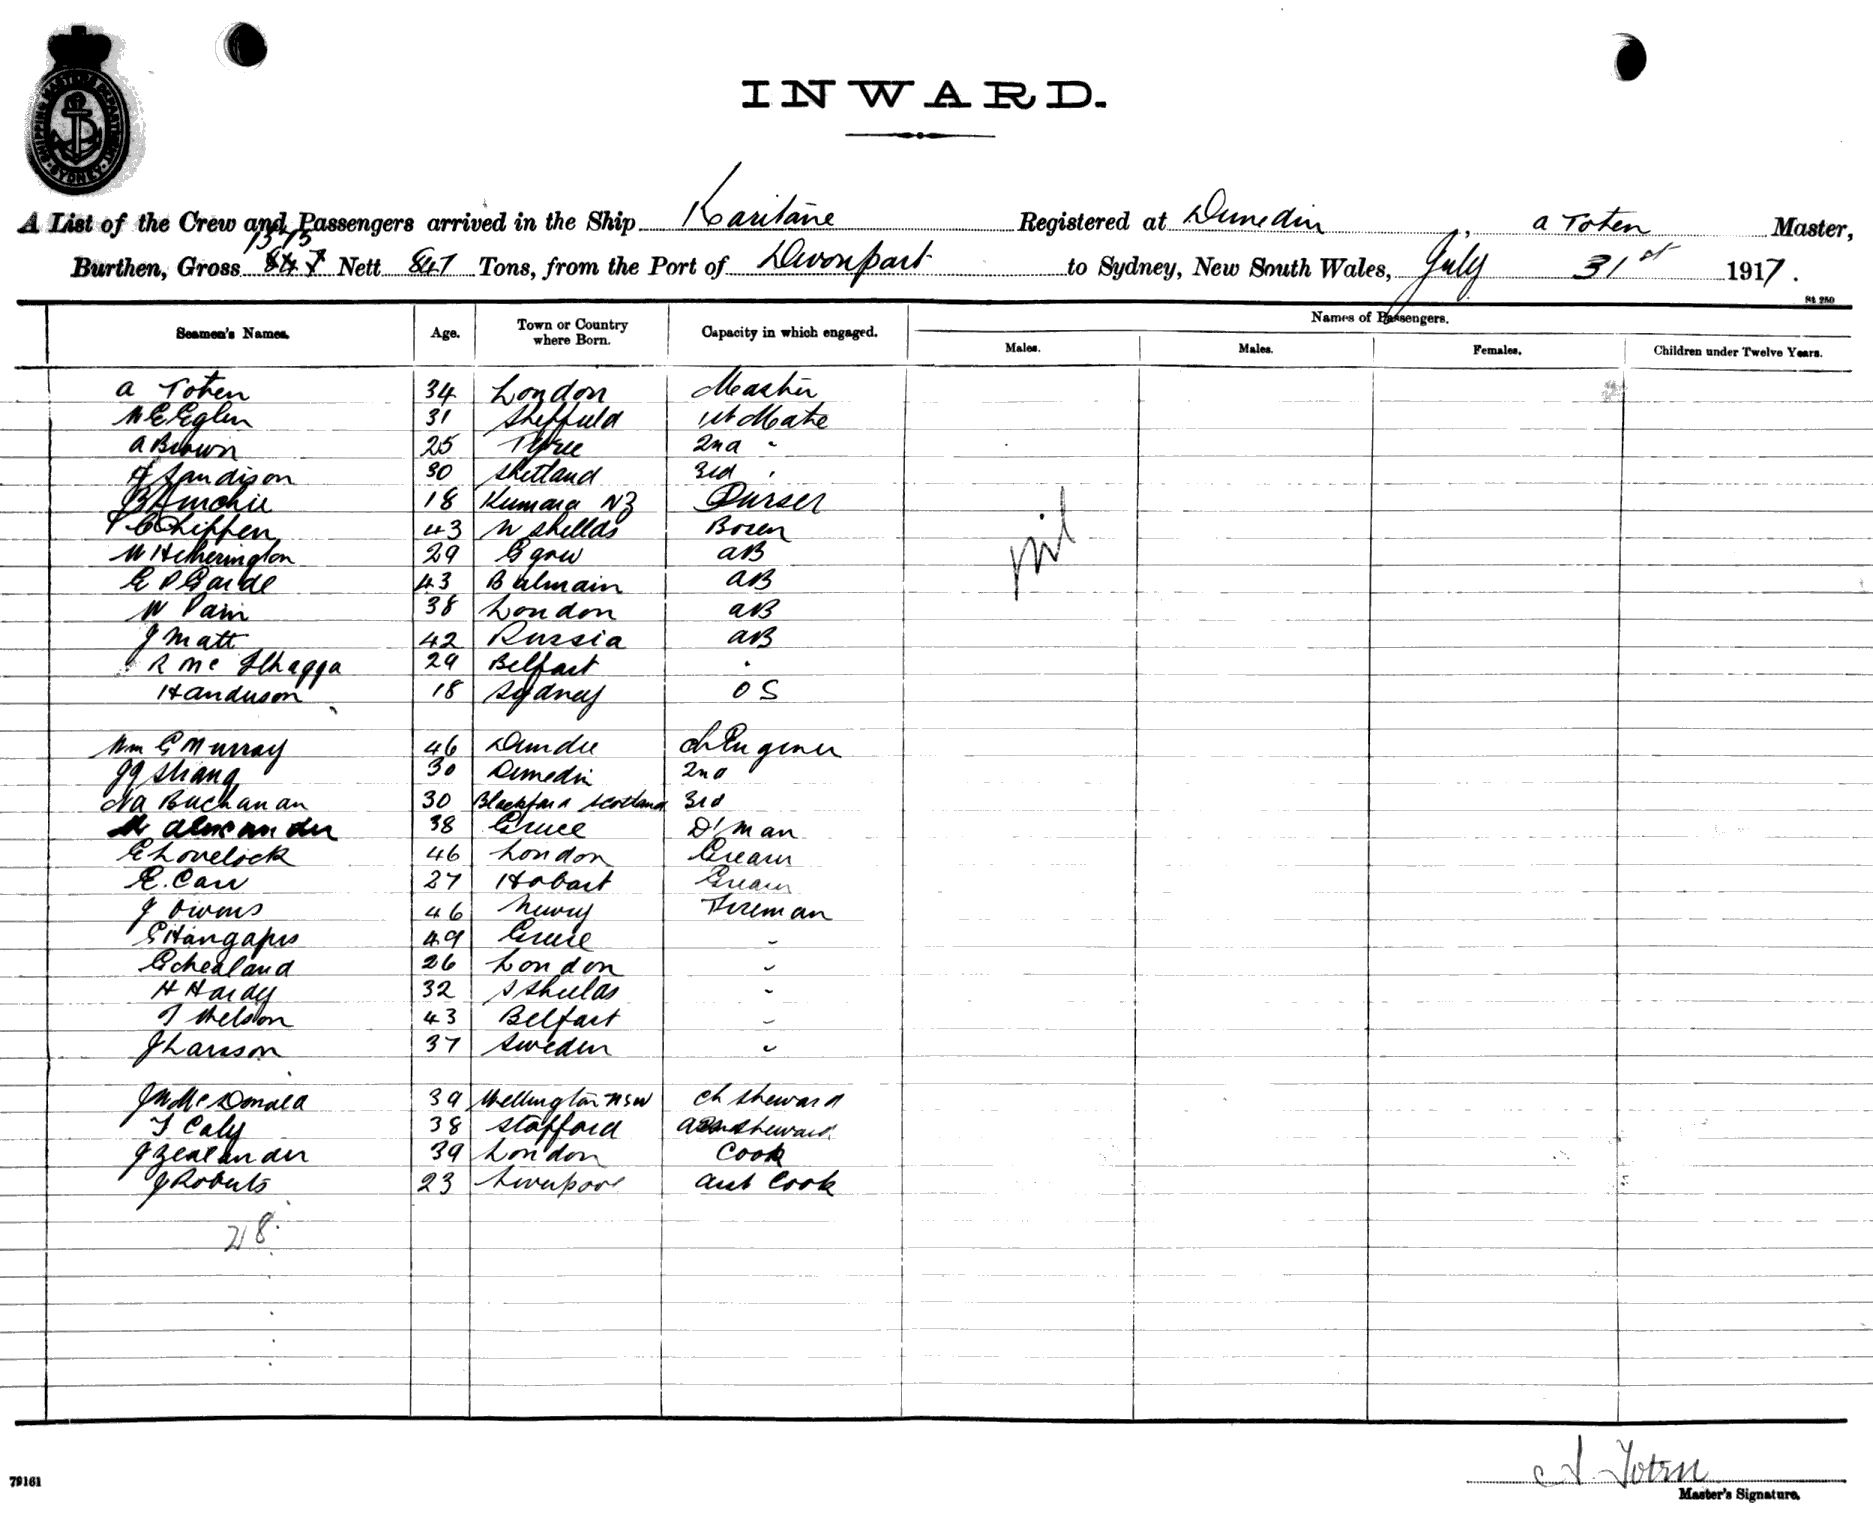 SHIPPING MASTERS DEPARTMENT
SYDNEY
INWARD.
A List of the Crew and Passengers arrived in the Ship Karitane Registered at Dunedin, A Toten Master,
1375
Burthen, Gross 847 Nett 847 Tons, from the Port of Devonport to Sydney, New South Wales, July 31st 1917.
St 250
Seamen's Names. Age. Town or Country where Born. Capacity in which engaged. Names of Passengers.
Males. Males. Females. Children under Twelve Years.
A Toten 34 London Master
W E Eglen 31 Sheffield 1st Mate
A Brown 25 2nd "
Sandison 30 Shetland 3rd "
18 Kumara NZ Purser
43 N Shields Bosen
W Hetherington 29 Ggow AB
E P Garde 43 Balmain AB
W Pain 38 London AB
J Matt 42 Russia AB
R Mc 29 Belfast "
H Anderson 18 Sydney OS
nil
Wm G Murray 46 Dundee Ch Enginer
J G Strang 30 Dunedin 2nd
Buchanan 30 Blackford Scotland 3rd
Alexander 38 Greece D'man
E Lovelock 46 London Greaser
E. Carr 27 Hobart Greaser
J Owens 46 Newry Fireman
49 Greece "
26 London "
H Hardy 32 S Shields "
T Nelson 43 Belfast "
J Larsson 37 Sweden "
J W McDonald 39 Wellington NSW Ch Steward
T Caly 38 Stafford Steward
J Zealander 39 London Cook
J Roberts 23 Liverpool Asst Cook
28
A Toten
Master's Signature.
79161